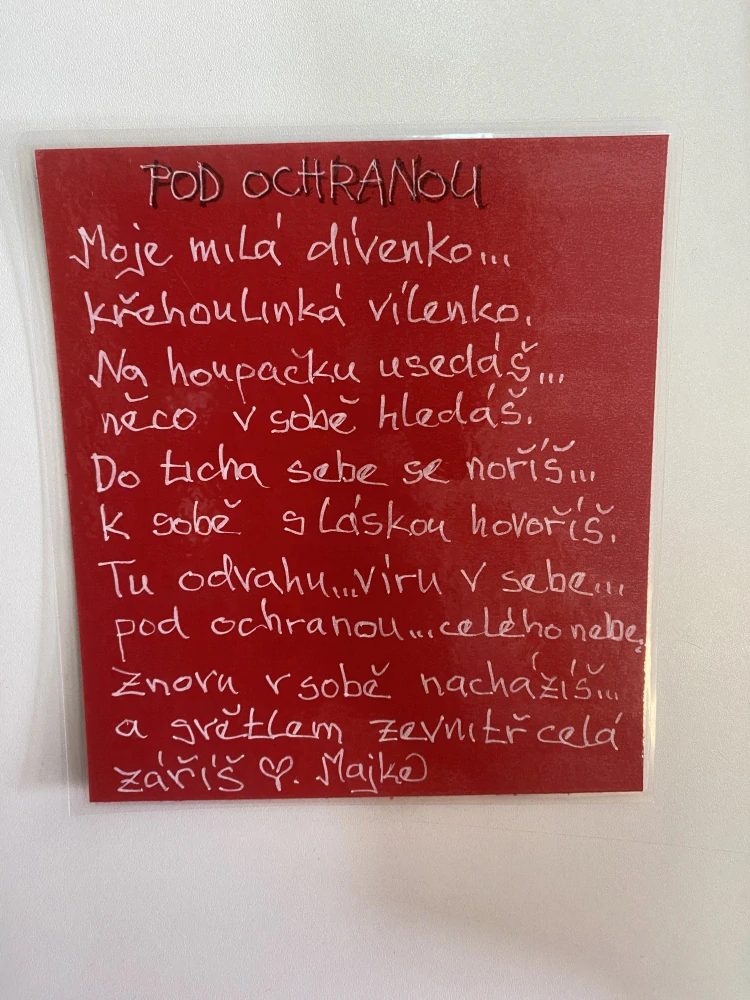 POD OCHRANOU
Moje milá dívenko...
křehoulinká vílenko.
Na houpačku usedáš...
něco v sobě hledáš.
Do ticha sebe se noříš...
K sobě s láskou hovoříš.
Tu odvahu...víru v sebe...
pod ochranou...celého nebe,
znovu v sobě nacházíš...
a světlem zevnitř celá
záříš ♡. Majka